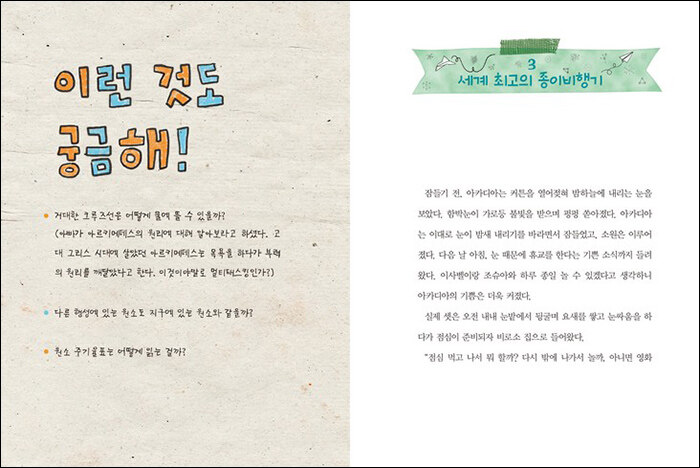 이런 것도
궁금해!
거대한 크루즈선은 어떻게 물에 뜰 수 있을까?
(아빠가 아르키메데스의 원리에 대해 알아보라고 하셨다. 고
대 그리스 시대에 살았던 아르키메데스는 목욕을 하다가 부력
의 원리를 깨달았다고 한다. 이것이야말로 멀티태스킹인가?)
다른 행성에 있는 원소도 지구에 있는 원소와 같을까?
원소 주기율표는 어떻게 읽는 걸까?
3
세계 최고의 종이비행기
잠들기 전, 아카디아는 커튼을 열어젖혀 밤하늘에 내리는 눈을
보았다. 함박눈이 가로등 불빛을 받으며 펑펑 쏟아졌다. 아카디아
는 이대로 눈이 밤새 내리기를 바라면서 잠들었고, 소원은 이루어
졌다. 다음 날 아침, 눈 때문에 휴교를 한다는 기쁜 소식까지 들려
왔다. 이사벨이랑 조슈아와 하루 종일 놀 수 있겠다고 생각하니
아카디아의 기쁨은 더욱 커졌다.
실제 셋은 오전 내내 눈밭에서 뒹굴며 요새를 쌓고 눈싸움을 하
다가 점심이 준비되자 비로소 집으로 들어왔다.
“점심 먹고 나서 뭐 할까? 다시 밖에 나가서 놀까, 아니면 영화